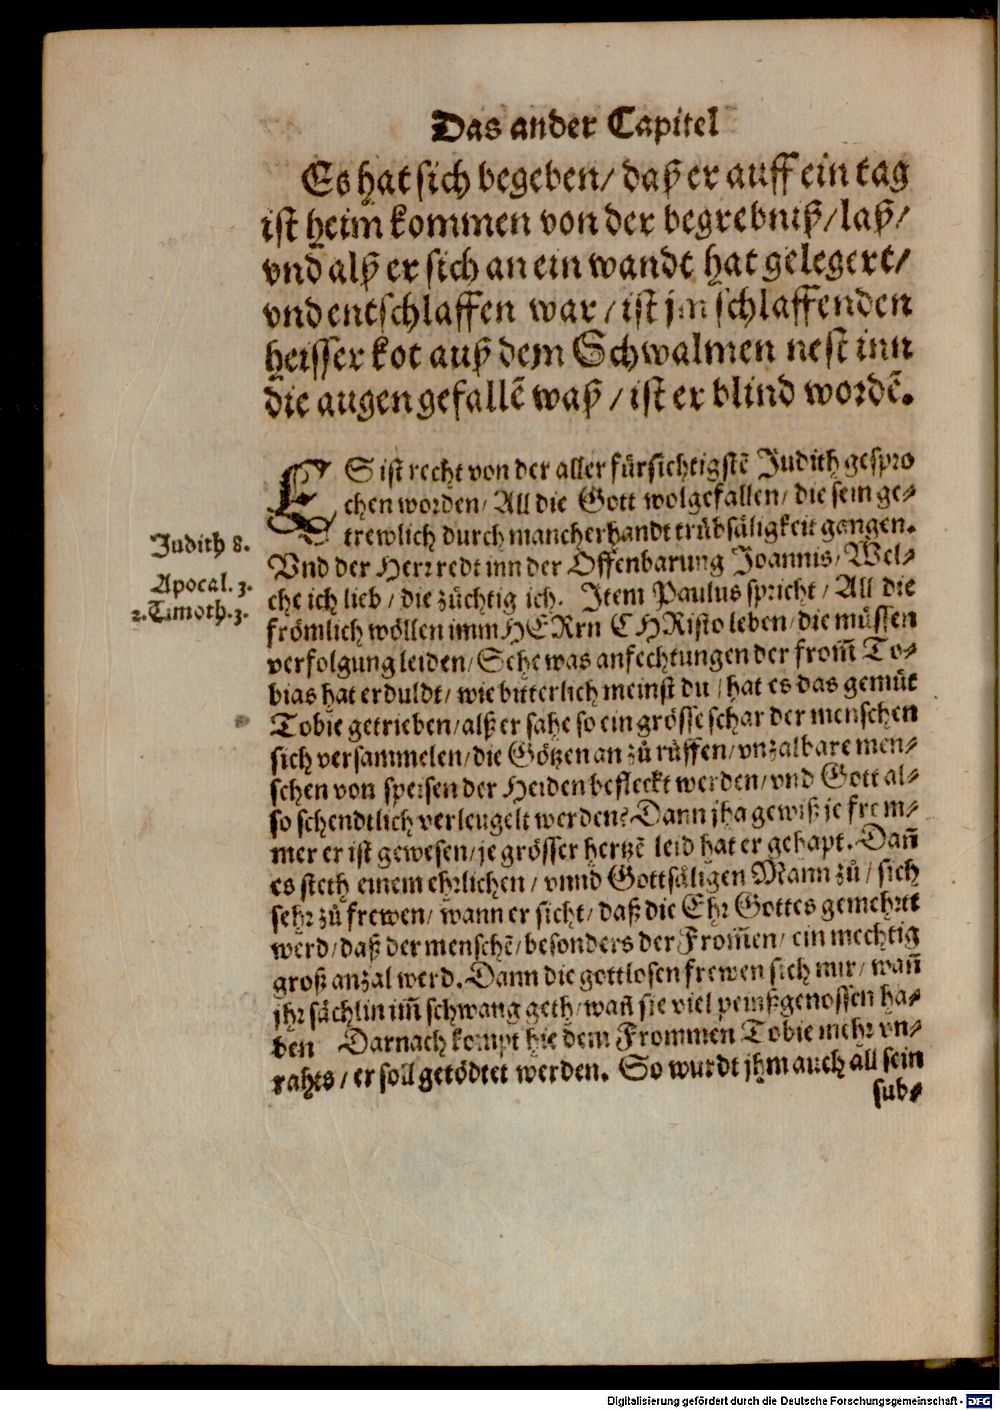 Das ander Capitel
Es hat sich begeben/ daß er auff ein tag
ist heim kommen von der begrebniß/ laß/
vnd alß er sich an ein wandt hat gelegert/
vnd entschlaffen war/ ist jm schlaffenden
heisser kot auß dem Schwalmen nest inn
die augen gefallẽ waß/ ist er blind wordẽ.
ES ist recht von der aller fürsichtigstẽ Judith gespro
chen worden/ All die Gott wolgefallen/ die sein ge-
trewlich durch mancherhandt trübsäligkeit gangen.
Judith 8.
Vnd der Herr redt inn der Offenbarung Joannis/ Wel-
Apocal. 3.
che ich lieb/ die züchtig ich. Item Paulus spricht/ All die
2. Timoth. 3.
frömlich wöllen imm HERrn CHRisto leben/ die müssen
verfolgung leiden/ Sehe was anfechtungen der from̃ To-
bias hat erduldt/ wie bitterlich meinst du/ hat es das gemüt
Tobie getrieben/ alß er sahe so ein grösse schar der menschen
sich versammelen/ die Götzen an zů rüffen/ vnzalbare men-
schen von speisen der Heiden befleckt werden/ vnd Gott al-
so schendtlich verleugelt werden? Dann jha gewiß je from-
mer er ist gewesen/ je grösser hertzẽ leid hat er gehapt. Dañ
es steth einem ehrlichen/ vnnd Gottsäligen Mann zů/ sich
sehr zů frewen/ wann er sicht/ daß die Ehr Gottes gemehrt
werd/ daß der menschẽ/ besonders der From̃en/ ein mechtig
groß anzal werd. Dann die gottlosen frewen sich nur/ wañ
jhr sächlin im̃ schwang geth/ wañ sie viel peinßgenossen ha-
ben Darnach kompt hie dem Frommen Tobie mehr vn-
rahts/ er soll getödtet werden. So wurdt jhm auch all sein
sub-
Digitalisierung gefördert durch die Deutsche Forschungsgemeinschaft - DFG